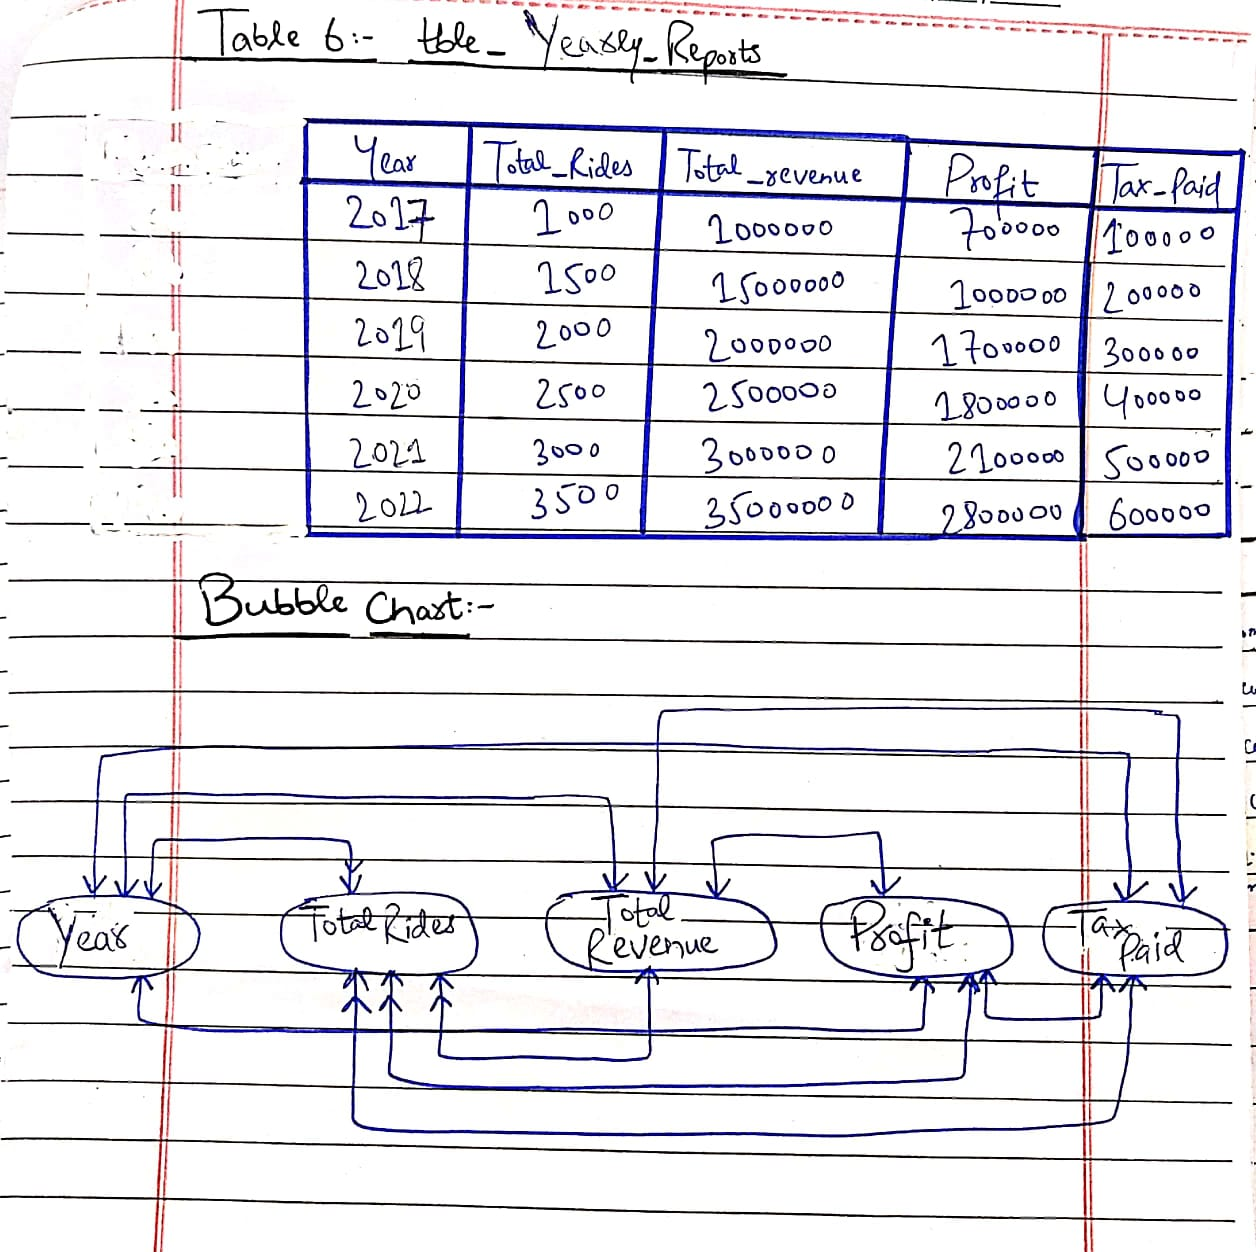 Table 6:- tble_Yearly_Reports
Year Total_Rides Total_revenue Profit Tax_Paid
2017 1000 1000000 700000 100000
2018 1500 15000000 1000000 200000
2019 2000 2000000 1700000 300000
2020 2500 2500000 1800000 400000
2021 3000 3000000 2100000 500000
2022 3500 35000000 2800000 600000
Bubble Chart:-
Year Total Rides Total Revenue Profit Tax Paid